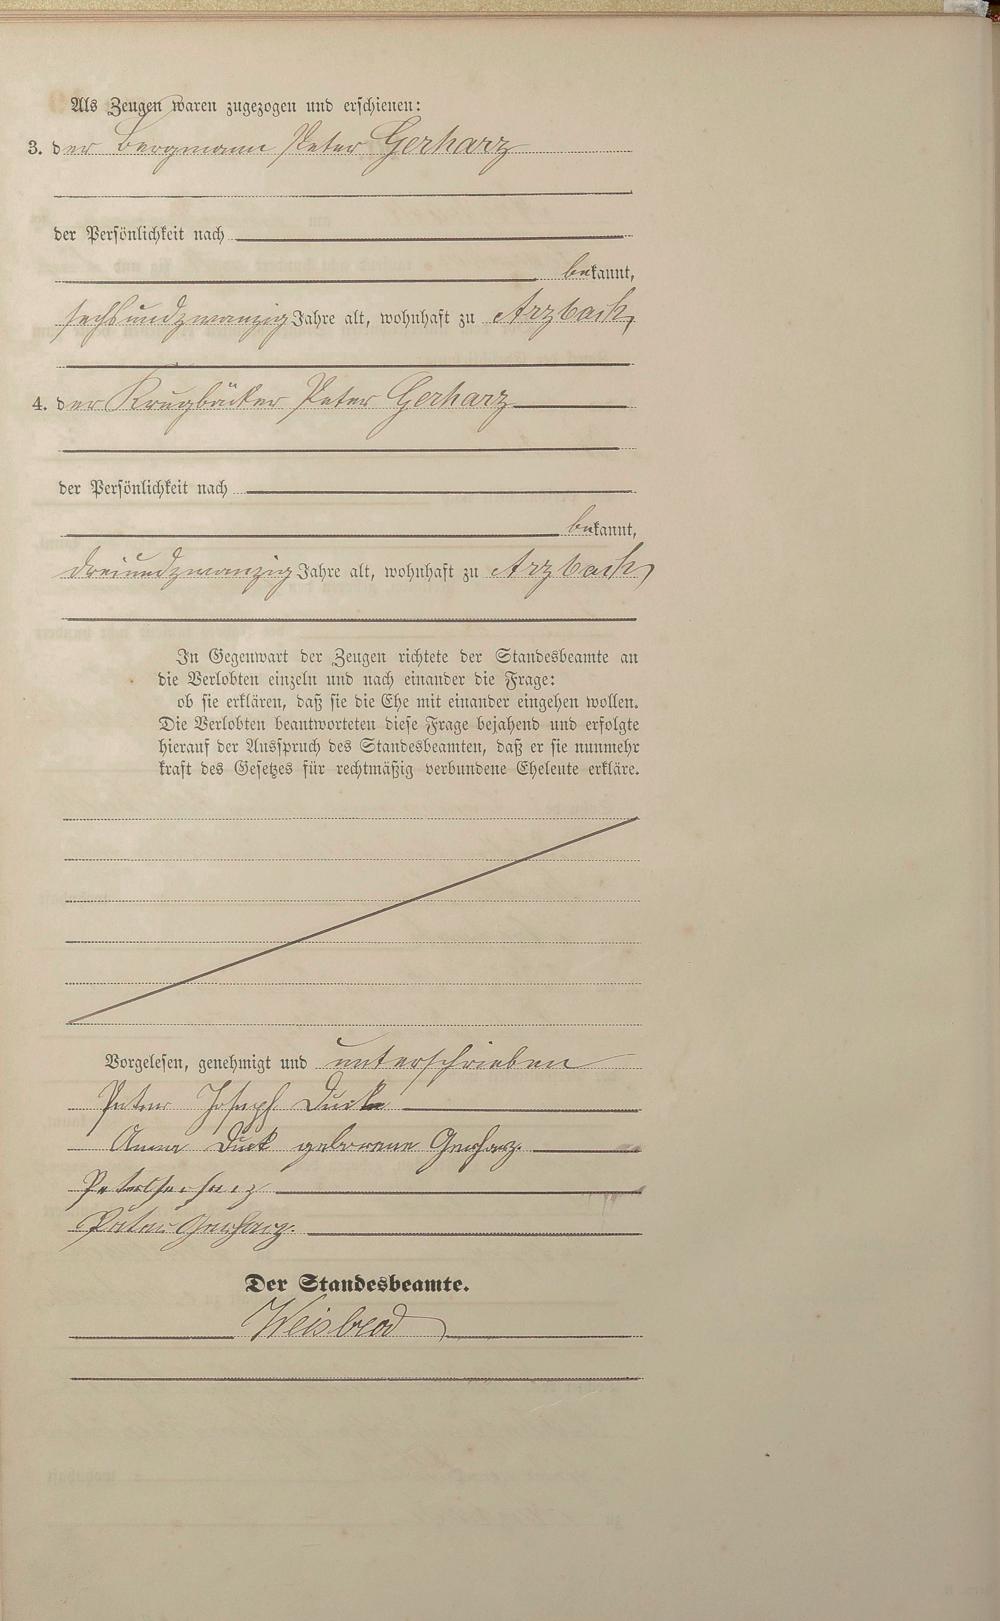 Als Zeugen waren zugezogen und erschienen:
3. der Bergmann Peter Gerharz
der Persönlichkeit nach
bekannt,
sechsundzwanzig Jahre alt, wohnhaft zu Arzbach,
4. der Krugbäcker Peter Gerharz
der Persönlichkeit nach
bekannt,
dreiundzwanzig Jahre alt, wohnhaft zu Arzbach,
In Gegenwart der Zeugen richtete der Standesbeamte an
die Verlobten einzeln und nach einander die Frage:
ob sie erklären, daß sie die Ehe mit einander eingehen wollen.
Die Verlobten beantworteten diese Frage bejahend und erfolgte
hierauf der Ausspruch des Standesbeamten, daß er sie nunmehr
kraft des Gesetzes für rechtmäßig verbundene Eheleute erkläre.
Vorgelesen, genehmigt und unterschrieben
Peter Joseph Duck
Anna Duck geborene Gerharz
Peter Gerharz
Peter Gerharz.
Der Standesbeamte.
Weisbrod